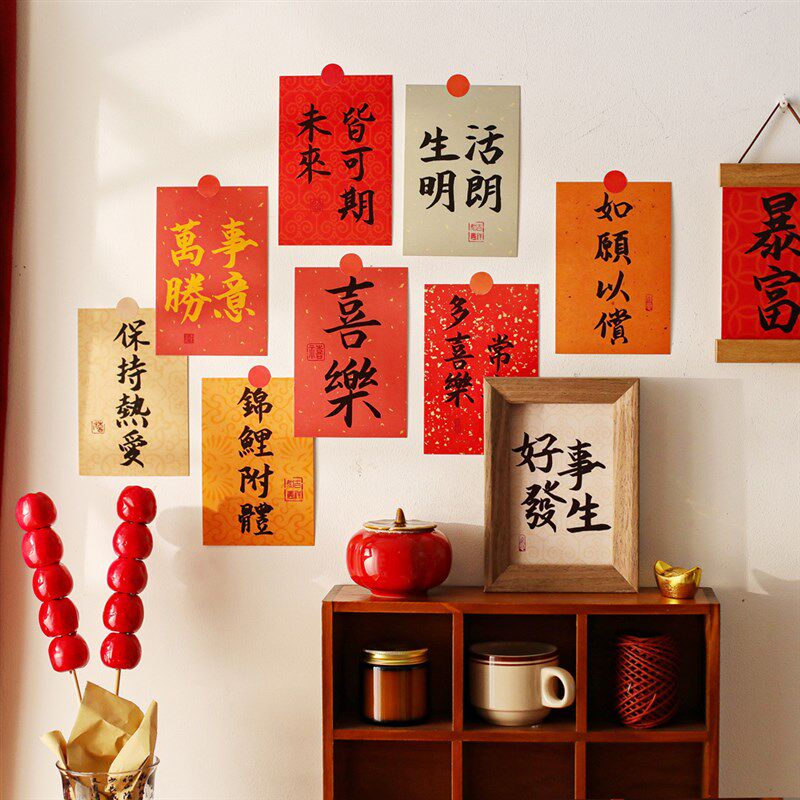 未來
皆可期
生活
明朗
萬事
勝意
如願以償
暴富
喜樂
多喜樂
常
保持熱愛
錦鯉附體
好事
發生